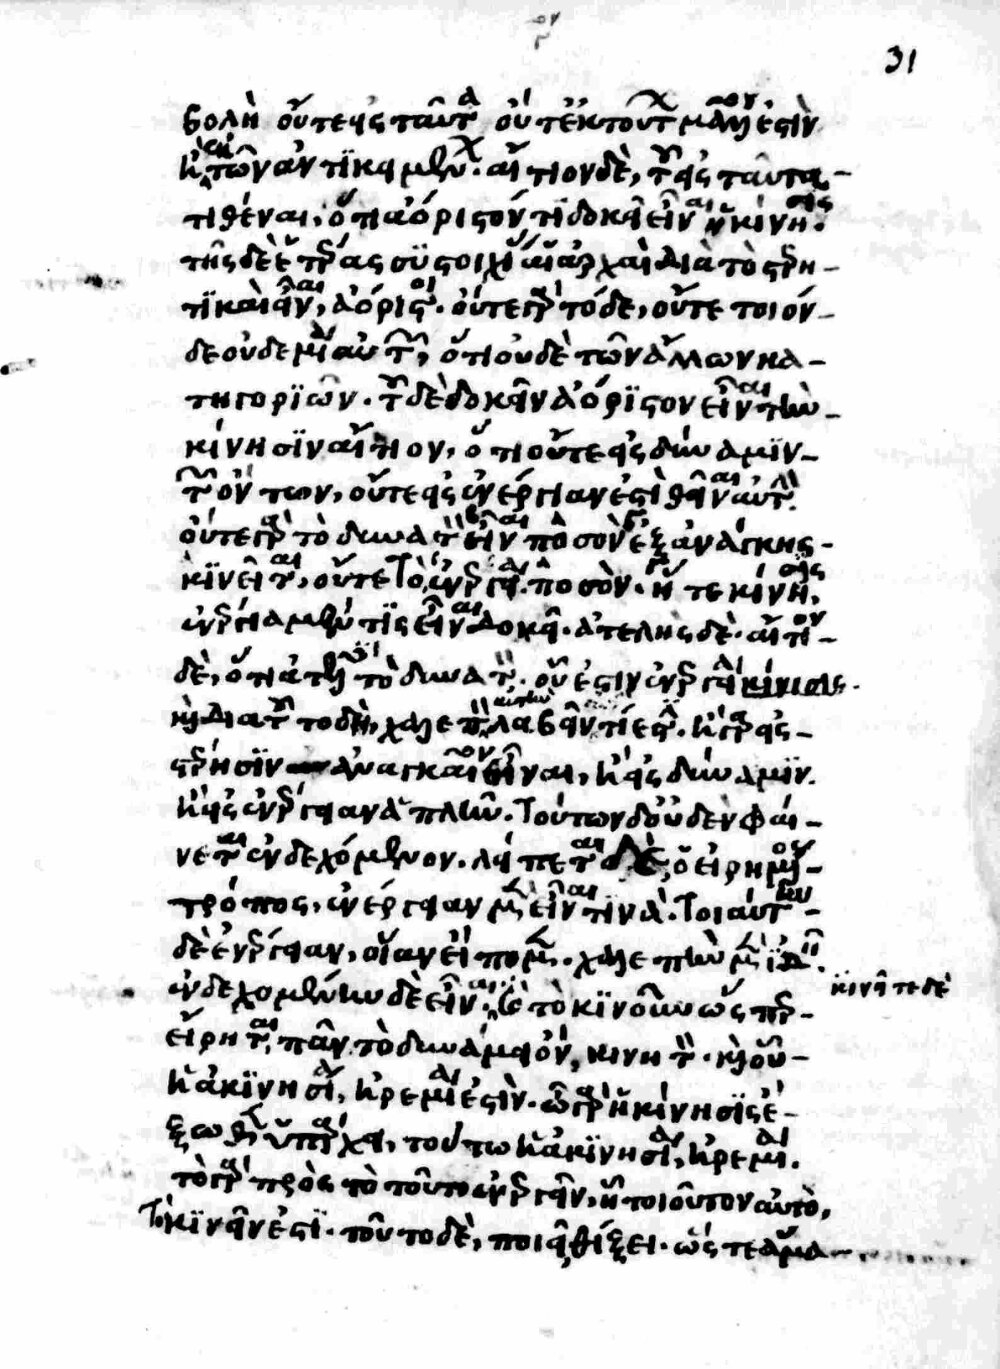 31
βολὴ οὔτε εἰς ταῦτα οὔτ' ἐκ τούτων μᾶλλον ἐστὶν
ἢ ἐκ τῶν ἀντικειμένων. αἴτιον δὲ, τοῦ εἰς ταῦτα
τιθέναι, ὅτι ἀόριστόν τι δοκεῖ εἶναι ἡ κίνησις.
τῆς δὲ ἑτέρας συστοιχίας αἱ ἀρχαὶ διὰ τὸ στερη-
τικαὶ εἶναι, ἀόριστοι. οὔτε γὰρ τόδε, οὔτε τοιόν-
δε οὐδεμία αὐτῶν, ὅτι οὐδὲ τῶν ἄλλων κα-
τηγοριῶν. τοῦ δὲ δοκεῖν ἀόριστον εἶναι τὴν
κίνησιν αἴτιον, ὅτι οὔτε εἰς δύναμιν
τῶν ὄντων, οὔτε εἰς ἐνέργειαν ἐστὶ θεῖναι αὐτήν.
οὔτε γὰρ τὸ δυνατὸν εἶναι ποσὸν ἐξ ἀνάγκης
κινεῖται, οὔτε τὸ ἐνεργείᾳ ποσὸν. ἥ τε κίνησις,
ἐνέργεια μέν τις εἶναι δοκεῖ. ἀτελὴς δὲ. αἴτιον
δὲ, ὅτι ἀτελὲς τὸ δυνατὸν. οὗ ἐστὶν ἐνέργεια κίνησις.
καὶ διὰ τοῦτο δὴ, χαλεπὸν αὐτὴν λαβεῖν τί ἐστίν. ἢ γὰρ εἰς
στέρησιν ἀναγκαῖον θεῖναι, ἢ εἰς δύναμιν.
ἢ εἰς ἐνέργειαν ἁπλῆν. τούτων δ' οὐδὲν φαί-
νεται ἐνδεχόμενον. λείπεται ὁ εἰρημένος
τρόπος, ἐνέργειαν μὲν εἶναι τινὰ. τοιαύτην
δὲ ἐνέργειαν, οἵαν εἴπομεν. χαλεπὴν μὲν ἰδεῖν.
ἐνδεχομένην δὲ εἶναι. κινεῖται δὲ
καὶ τὸ κινοῦν ὥσπερ
εἴρηται, πᾶν τὸ δυνάμει ὂν κινητὸν. καὶ οὗ
ἡ ἀκινησία, ἠρεμία ἐστὶν. ᾧ γὰρ ἡ κίνησις ὑ-
πάρχει, τούτῳ ἡ ἀκινησία, ἠρεμία.
τὸ γὰρ πρὸς τὸ τοῦτο ἐνεργεῖν, ᾗ τοιοῦτον αὐτὸ,
τὸ κινεῖν ἐστὶ. τοῦτο δὲ, ποιεῖ θίξει. ὥστε ἅμα